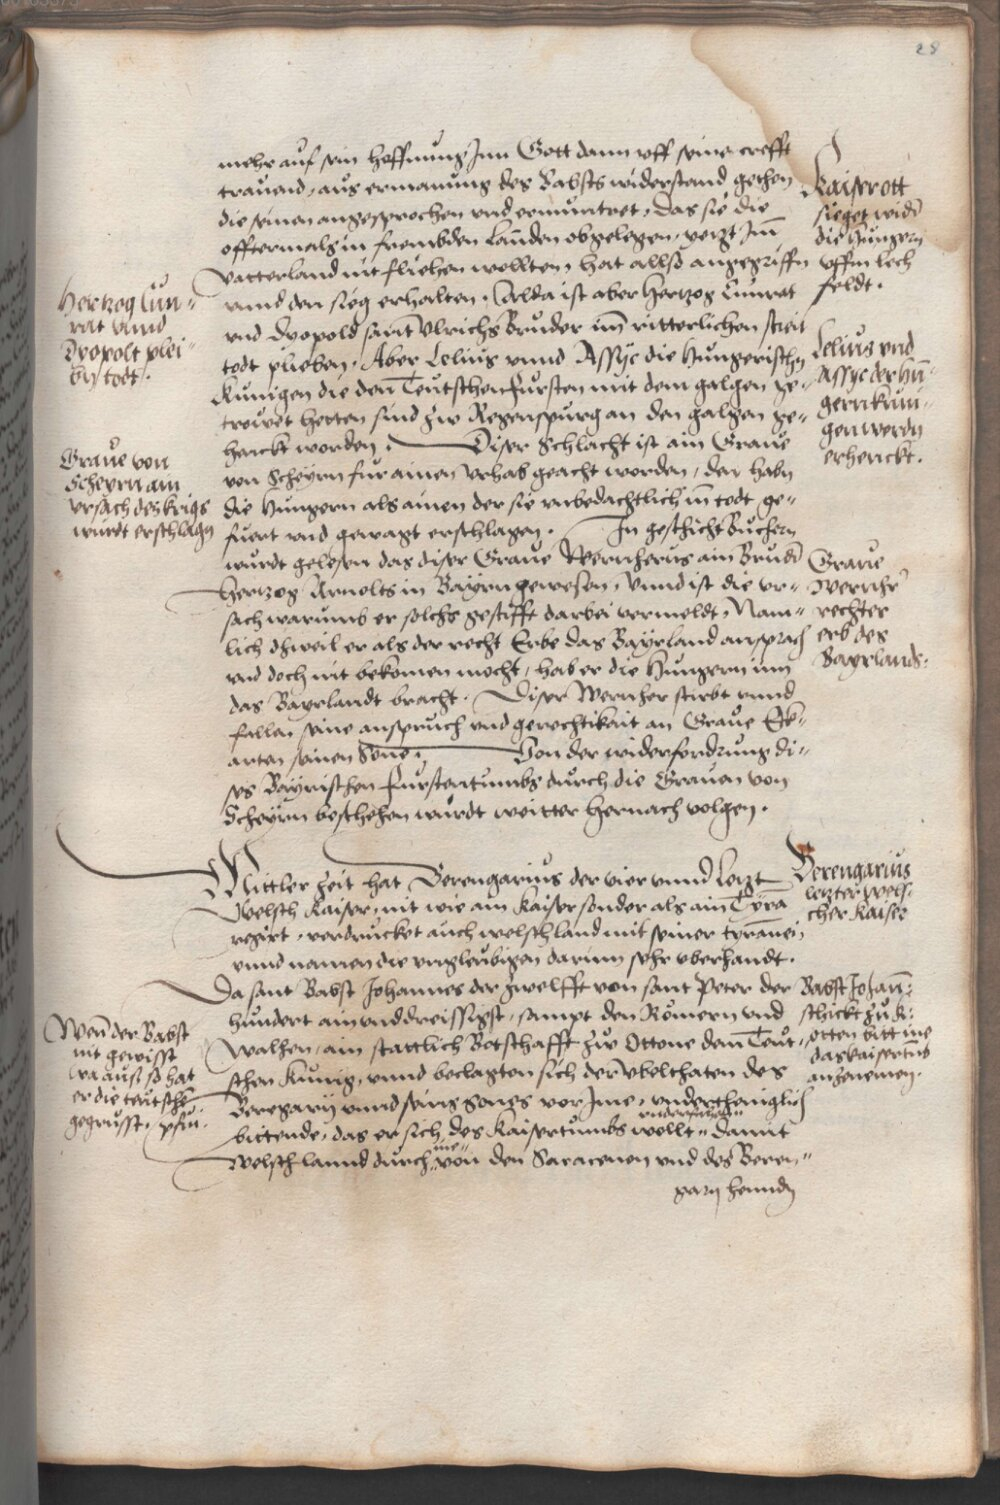 28
mehr auf sein hoffnung Jnn Gott dann uff seine crefft
trauend, aus ermanung des Babsts widerstand gethon
die seinen angesprochen und ermuntret, Das sie die
offtermals in frembden Landen obgelegen, yetzt Jm̄
Vatterland nit fliehen wollten, hat allso angegriffn
unnd den sieg erhalten. Alda ist aber Hertzog Cunrat
und Dyopold sant Ulrichs Bruder im̄ ritterlichen streit
todt plieben. Aber Lelius unnd Assyc die Hungerischn
Kunigen die den Teutschen Fursten mit dem galgen ge-
trowet hetten sind zw Regenspurg an den galgen ge-
henckt worden. Diser Schlacht ist ain Graue
von Scheyrn fur ainen Urhab geacht worden, den habn
die Hungern als ainen der sie unbedachtlich in todt ge-
fuert und gewagt erschlagen. In geschicht Buchern
wurdt gelesen das diser Graue Wernherus ain Bruder
Hertzog Arnolts in Bayrn gewesen, Unnd ist die ur-
sach warumb er solchs gestifft darbei vermeldt, Nam-
lich dhweil er als der recht Erbe das Bayrland ansprach
und doch nit bekomen mocht, hab er die Hungern inn
das Bayrlandt bracht. Diser Wernher stirbt unnd
fallen seine anspruch und gerechtikait an Graue Ek-
arten seinen Sone. Von der widerfordrung di-
ses Bayrischen Furstentumbs durch die Grauen von
Scheyrn beschehen wurdt weitter hernach volgen.
Mittler zeit hat Berengarius der vier unnd Letzt
Welsch Kaiser, nit wie ain Kaiser sonder als ain Tyran
regirt, verdrucket auch welschland mit seiner tyrannei,
unnd namen die unglaubigen darinn sehr uberhandt.
Da sant Babst Johannes der zwelfft von sant Peter der
hundert ain unddreissigst, sampt den Römern und
Walhen, ain stattlich Botschafft zw Ottone dem Teut-
schen Kunig, unnd beclagten sich der Ubelthaten des
Beregarij unnd seins Sones vor Jme, underthaniglich
bittende, das er sich des Kaisertumbs wollt damit
Welschlannd durch ine von den Saracenen und des Beren-
garij henndn
Hertzog Cun-
rat unnd
Dyopolt plei-
ben todt.
Graue von
Scheyrn ain
ursach des kriegs
wurdt erschlagn
Wen̄ der Babst
nit gewisst
wa auß so hat
er die teutschē
gegrusst, pfui.
Kaiser ott
sieget wider
die Hungern
uffm lech
feldt.
Lelius und
Assyc der Hu-
gern kuni-
gen werdn
erhenckt.
Graue
Wernher
rechter
erb des
Bayrlands.
Berengarius
letzter Wels-
cher Kaiser
Babst Johan̄.
schickt zu k.
otten bitt ine
das kaisertūb
anzenemen.